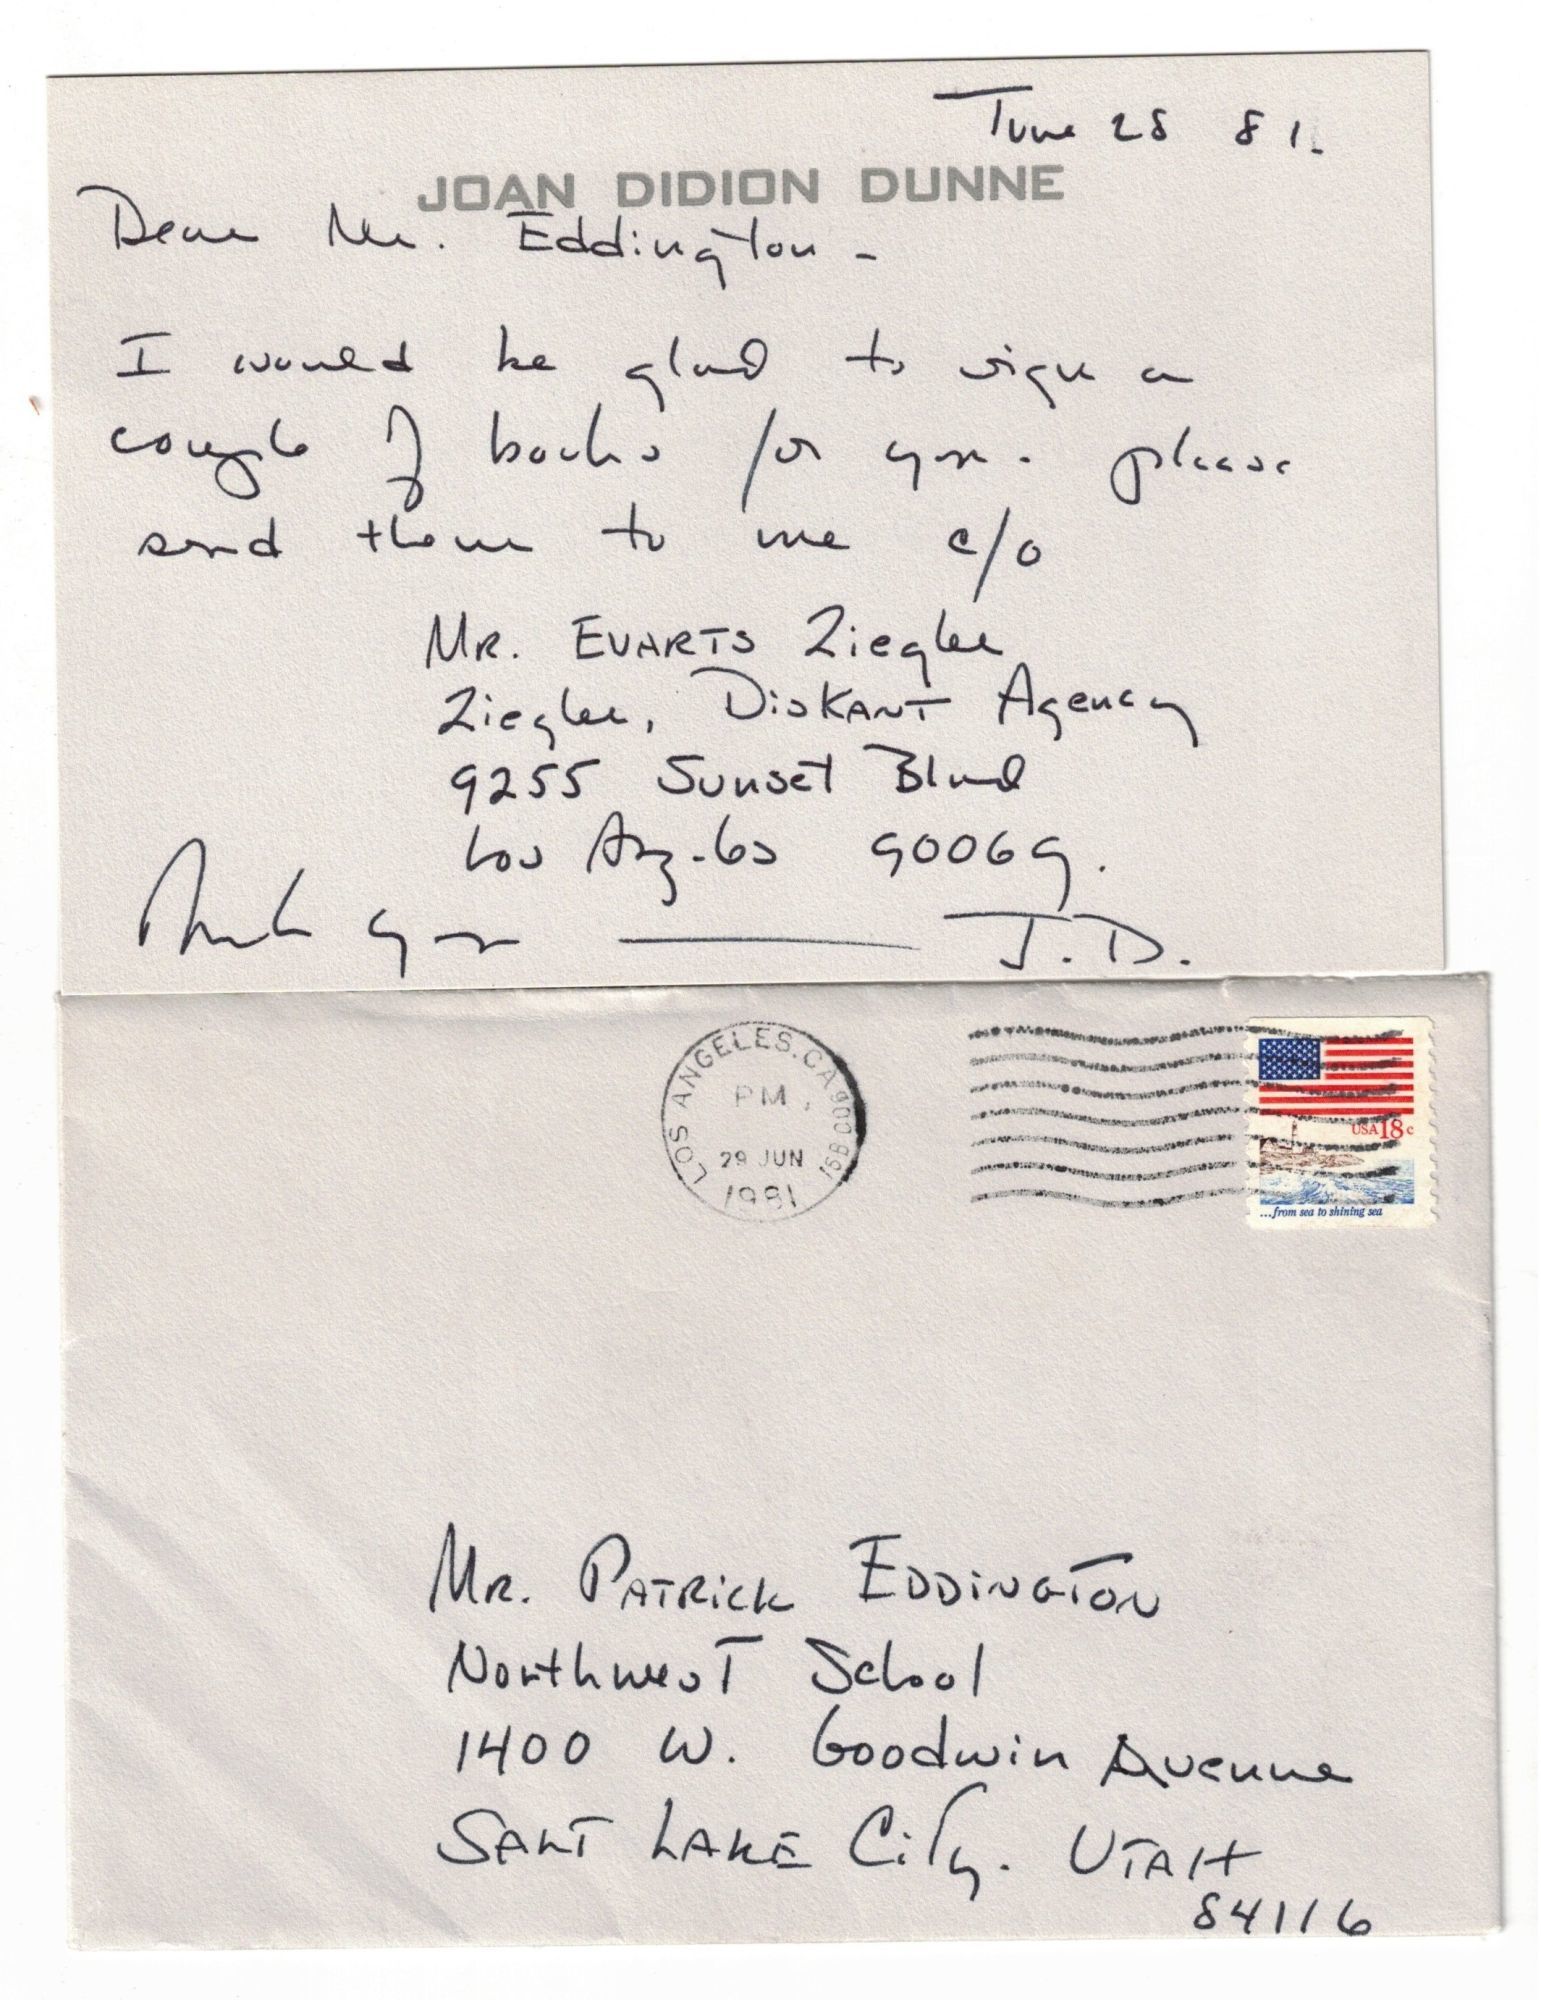 June 28 81.
JOAN DIDION DUNNE
Dear Mr. Eddington -
I would be glad to sign a
couple of books for you. please
send them to me c/o
MR. EVARTS Ziegler
Ziegler, DisKANT Agency
9255 Sunset Blvd
Los Angeles 90069.
Thank you — J.D.
LOS ANGELES, CA 900
PM
29 JUN
1981
USA 18c
...from sea to shining sea
MR. PATRICK EDDINGTON
Northwest School
1400 W. Goodwin Avenue
SALT LAKE City. UTAH
84116